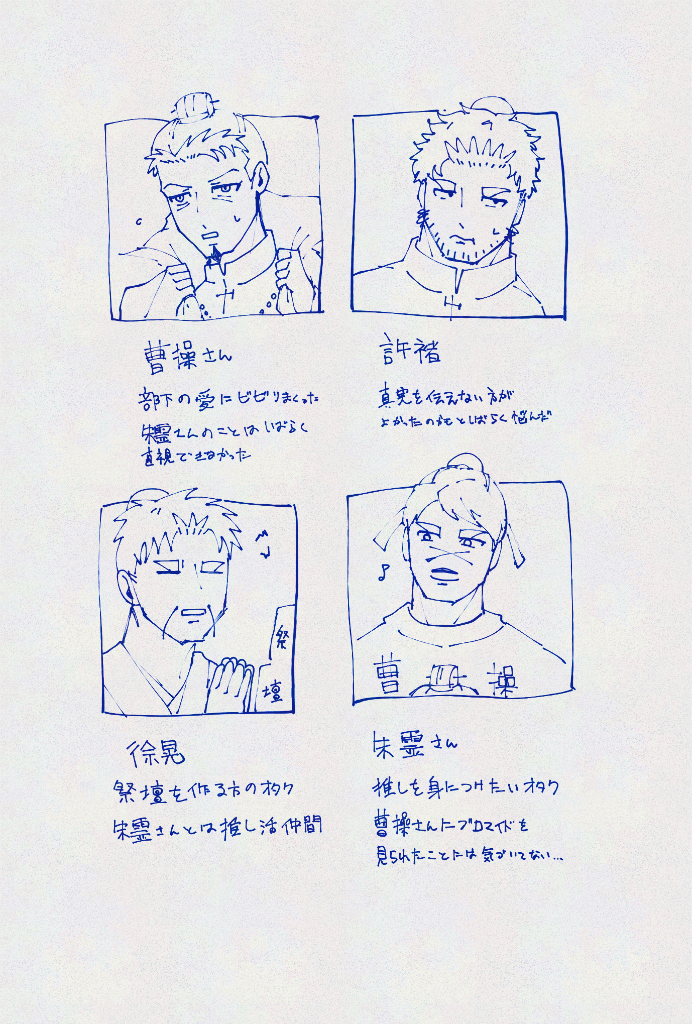 曹操さん
部下の愛にビビりまくった
朱霊さんのことはしばらく
直視できなかった
許褚
真実を伝えない方が
よかったのかもとしばらく悩んだ
祭
壇
徐晃
祭壇を作る方のオタク
朱霊さんとは推し活仲間
曹 操
朱霊さん
推しを身につけたいオタク
曹操さんにブロマイドを
見られたことには気づいてない…